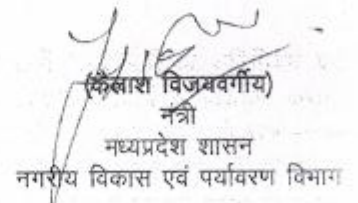 (कैलाश विजयवर्गीय)
मंत्री
मध्यप्रदेश शासन
नगरीय विकास एवं पर्यावरण विभाग